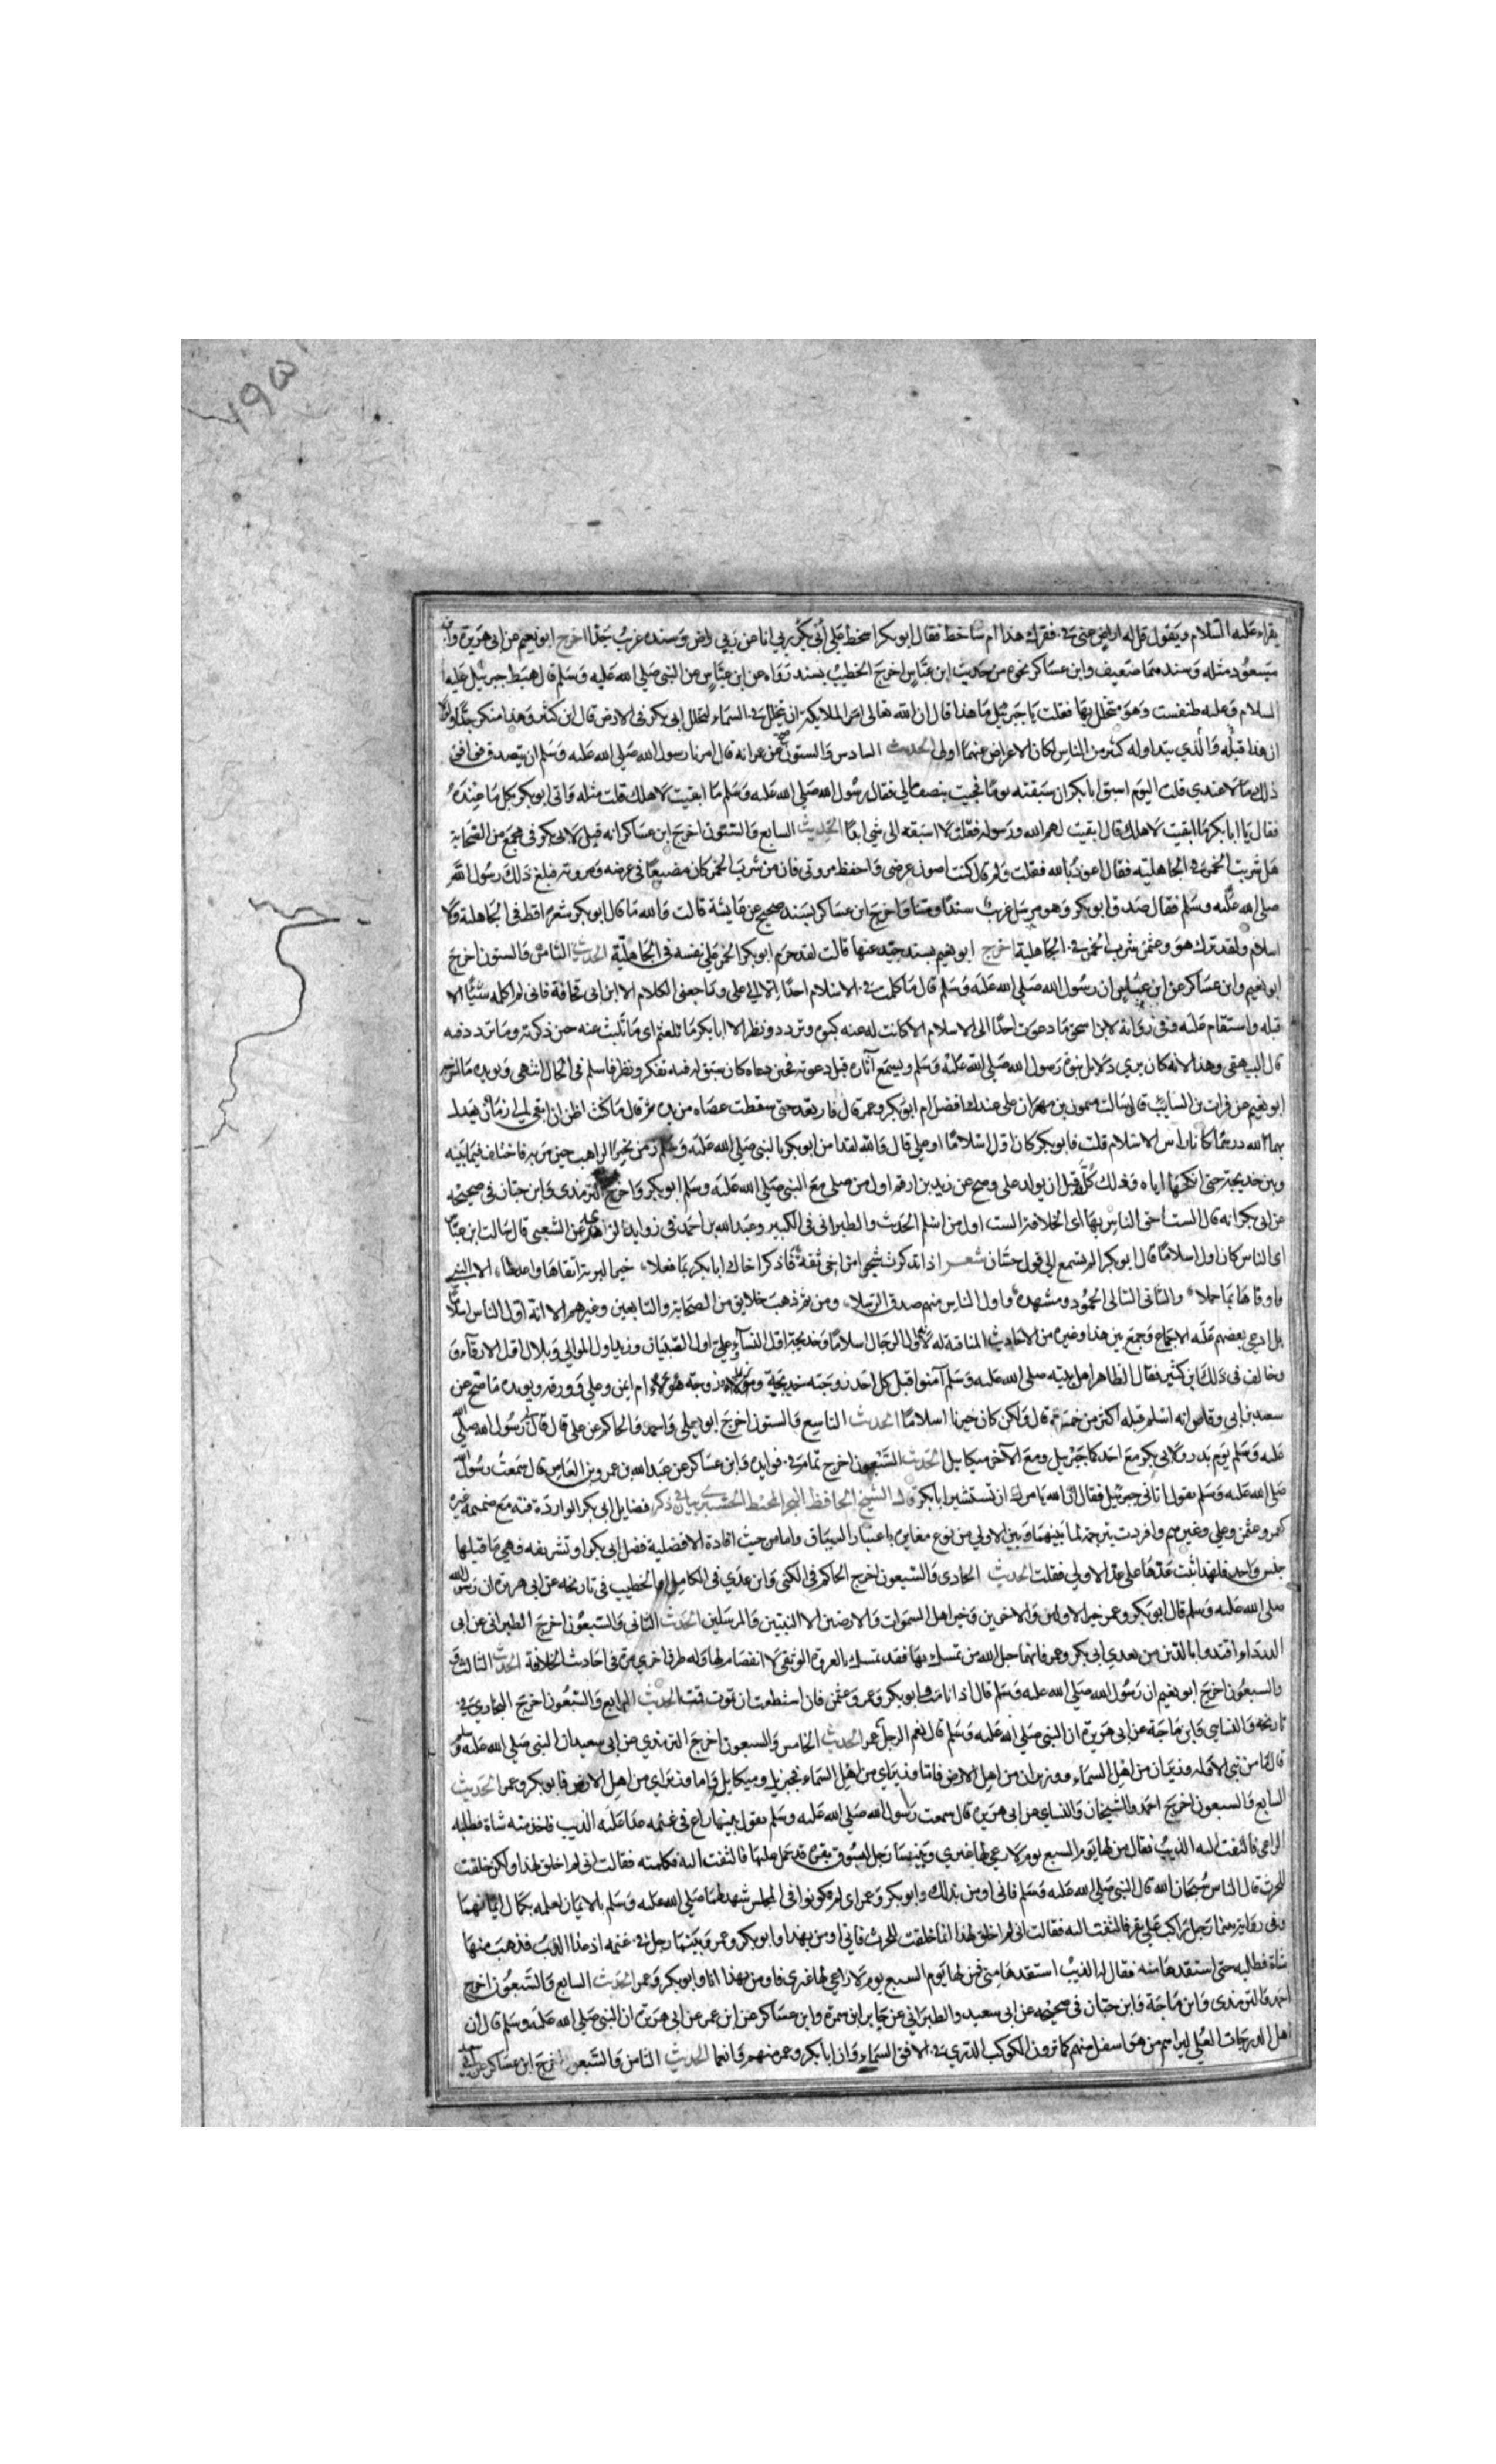 يقراء عليه السلام ويقول قل له اراض عني في فقرك هذا ام ساخط فقال ابو بكر اسخط علي ربي انا عن ربي راض وسنده غريب جدا اخرج ابو نعيم عن ابي هريرة وابن
مسعود مثله وسندهما ضعيف وابن عساكر نحوه من حديث ابن عباس اخرج الخطيب بسند رواه عن ابن عباس عن النبي صلي الله عليه وسلم قال هبط جبرئيل عليه
السلام وعليه طنفست وهو متخلل بها فقلت يا جبرئيل ما هذا قال ان الله تعالى امر الملايكة ان تخلل في السماء لتخلل ابي بكر في الارض قال ابن كثير وهذا منكر جدا ولولا
ان هذا قبله والذي يتداوله كثير من الناس لكان الاعراض عنهما اولى الحديث السادس والستون صح عن عمر انه قال امرنا رسول الله صلي الله عليه وسلم ان نتصدق فوافق
ذلك مالا عندي قلت اليوم اسبق ابا بكر ان سبقته يوما فجيت بنصف مالي فقال رسول الله صلي الله عليه وسلم ما ابقيت لاهلك قلت مثله واتى ابو بكر بكل ما عنده
فقال يا ابا بكر ما ابقيت لاهلك قال ابقيت لهم الله ورسوله فقلت لا اسبقه الى شي ابدا الحديث السابع والستون اخرج ابن عساكر انه قيل لابي بكر في مجمع من الصحابة
هل شربت الخمر في الجاهلية فقال اعوذ بالله فقلت ولم قال كنت اصون عرضي واحفظ مروتي فان من شرب الخمر كان مضيعا في عرضه ومروته فبلغ ذلك رسول الله
صلي الله عليه وسلم فقال صدق ابو بكر وهو مرسل غريب سندا ومتنا واخرج ابن عساكر بسند صحيح عن عايشة قالت والله ما قال ابو بكر شعرا قط في الجاهلية ولا
اسلام ولقد ترك هو وعثمن شرب الخمر في الجاهلية اخرج ابو نعيم بسند جيد عنها قالت لقد حرم ابو بكر الخمر علي نفسه في الجاهلية الحديث الثامن والستون اخرج
ابو نعيم وابن عساكر عن ابن عباس ان رسول الله صلي الله عليه وسلم قال ما كلمت في الاسلام احدا الا ابى علي وراجعني الكلام الا ابن ابي قحافة فاني لم اكلمه شيئا الا
قبله واستقام عليه وفي رواية لابن اسحق ما دعوت احدا الى الاسلام الا كانت له عنه كبوة وتردد ونظر الا ابا بكر ما تلعثم اي ما تلبث عنه حين ذكرته وما تردد فيه
قال البيهقي وهذا لانه كان يري دلايل نبوة رسول الله صلي الله عليه وسلم ويسمع آثاره قبل دعوته فحين دعاه كان سبق له فيه تفكر ونظر فاسلم في الحال انتهى ويويده ما اخرجه
ابو نعيم عن فرات بن السايب قال سالت ميمون بن مهران علي عندك افضل ام ابو بكر وعمر قال فارتعد حتى سقطت عصاه من يده ثم قال ما كنت اظن ان ابقى الي زمان يعدل
بهما لله درهما كانا راس الاسلام قلت فابو بكر كان اول اسلاما او علي قال والله لقد امن ابو بكر بالنبي صلي الله عليه وسلم زمن بحيرا الراهب حين مر به فاختلف فيما بينه
وبين خديجة حتى انكحها اياه وذلك كله قبل ان يولد علي وصح عن زيد بن ارقم اول من صلى مع النبي صلي الله عليه وسلم ابو بكر واخرج الترمذي وابن حبان في صحيحه
عن ابي بكر انه قال الست احق الناس بها اي الخلافة الست اول من اسلم الحديث والطبراني في الكبير وعبد الله بن احمد في زوايد الزهد عن الشعبي قال سالت ابن عباس
اي الناس كان اول اسلاما قال ابو بكر الم تستمع الي قول حسان شعر اذا تذكرت شجوا من اخي ثقة فاذكر اخاك ابا بكر بما فعلا، خير البرية اتقاها واعدلها، الا النبي
واوفاها بما حملا، والثاني التالي المحمود ومشهده، واول الناس منهم صدق الرسلا، ومن ثم ذهب خلايق من الصحابة والتابعين وغيرهم الا انه اول الناس اسلاما
بل ادعى بعضهم عليه الاجماع وجمع بين هذا وغيره من الاحاديث المنافية له بانه اول الرجال اسلاما وخديجة اول النساء وعلي اول الصبيان وزيد اول الموالي وبلال اول الارقاء و
وخالف في ذلك ابن كثير فقال الظاهر اهل بيته صلى الله عليه وسلم آمنوا قبل كل احد زوجته خديجة ومولاه زيد وزوجة هولاء ام ايمن وعلي وورقه ويويده ما صح عن
سعد بن ابي وقاص انه اسلم قبله اكثر من خمسة قال ولكن كان خيرنا اسلاما الحديث التاسع والستون اخرج ابو يعلى واحمد والحاكم عن علي قال قال لي رسول الله صلي الله
عليه وسلم يوم بدر ولابي بكر مع احدكما جبريل ومع الآخر ميكاييل الحديث السبعون اخرج تمام في فوايده وابن عساكر عن عبد الله بن عمرو بن العاص قال سمعت رسول الله
صلي الله عليه وسلم يقول اتاني جبرئيل فقال ان الله يامرك ان تستشير ابا بكر قال الشيخ الحافظ البحر المحيط في ذكر فضايل ابي بكر الواردة فيه مع ضميمة غيره
كعمر وعثمن وعلي وغيرهم وافردت بترجمة لما بينهما وبين الاولي من نوع مغايرة باعتبار السياق واما من حيث افادة الافضلية فضل ابي بكر او تشريفه فهي ما قبلها
جنس واحد فلهذا بنيت عدها على عد الاولي فقلت الحديث الحادي والسبعون اخرج الحاكم في الكنى وابن عدي في الكامل والخطيب في تاريخه عن ابي هريرة ان رسول الله
صلي الله عليه وسلم قال ابو بكر وعمر خير الاولين والاخرين وخير اهل السموات والارضين الا النبيين والمرسلين الحديث الثاني والسبعون اخرج الطبراني عن ابي
الدرداء اقتدوا بالذين من بعدي ابي بكر وعمر فانهما حبل الله من تمسك بهما فقد تمسك بالعروة الوثقى لا انفصام لها وله طرق اخري مرة في احاديث الخلافة الحديث الثالث و
والسبعون اخرج ابو نعيم ان رسول الله صلي الله عليه وسلم قال اذا انا مت وابو بكر وعمر وعثمن فان استطعت ان تموت فمت الحديث الرابع والسبعون اخرج البخاري في
تاريخه والنسايي وابن ماجة عن ابي هريرة ان النبي صلي الله عليه وسلم قال نعم الرجل عمر الحديث الخامس والسبعون اخرج الترمذي عن ابي سعيد ان النبي صلي الله عليه وسلم
قال ما من نبي الا وله وزيران من اهل السماء ووزيران من اهل الارض فاما وزيراي من اهل السماء فجبريل وميكاييل واما وزيراي من اهل الارض فابو بكر وعمر الحديث
السابع والسبعون اخرج احمد والشيخان والنساي عن ابي هريرة قال سمعت رسول الله صلي الله عليه وسلم يقول بينما راع في غنمه عدا عليه الذيب فاخذ منه شاة فطلبه
الراعي فالتفت اليه الذيب فقال من لها يوم السبع يوم لا راعي لها غيري وبينما رجل يسوق بقرة قد حمل عليها فالتفت اليه فكلمته فقالت اني لم اخلق لهذا ولكن خلقت
للحرث قال الناس سبحان الله قال النبي صلي الله عليه وسلم فاني اومن بذلك وابو بكر وعمر اي لم يكونوا في المجلس شهد لهما صلي الله عليه وسلم بالايمان لعلمه بكمال ايمانهما
وفي رواية بينما رجل راكب علي بقرة فالتفت اليه فقالت اني لم اخلق لهذا انما خلقت للحرث فاني اومن بهذا وابو بكر وعمر وبينما رجل في غنمه اذ عدا الذيب فذهب منها
شاة فطلبه حتى استنقذها منه فقال له الذيب استنقذها مني فمن لها يوم السبع يوم لا راعي لها غيري فاومن بهذا انا وابو بكر وعمر الحديث السابع والسبعون اخرج
احمد والترمذي وابن ماجة وابن حبان في صحيحه عن ابي سعيد والطبراني عن جابر ابن سمرة وابن عساكر عن ابن عمر عن ابي هريرة ان النبي صلي الله عليه وسلم قال ان
اهل الدرجات العلي ليراهم من هو اسفل منهم كما ترون الكوكب الدري في الافق السماء وان ابا بكر وعمر منهم وانعما الحديث الثامن والسبعون اخرج ابن عساكر عن ابي